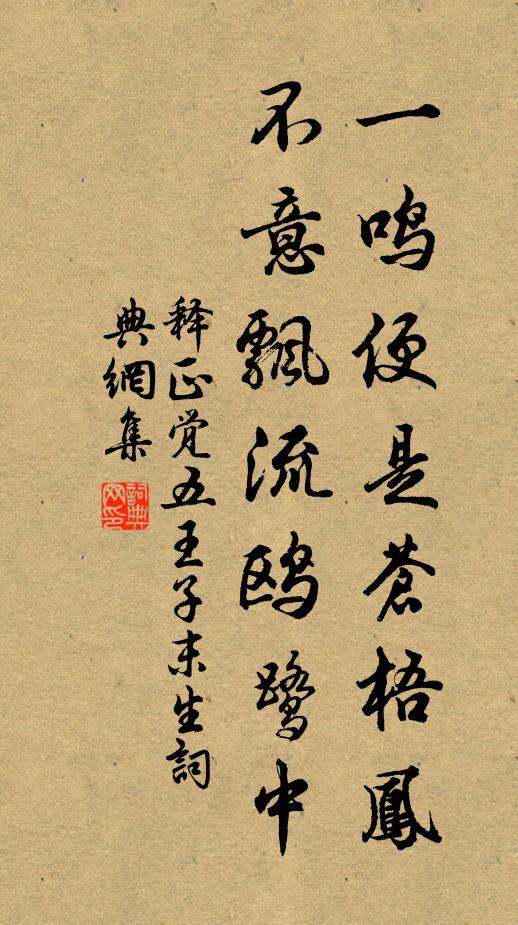 一鸣便是苍梧鳳
不意飄流鸥鹭中
释正觉五王子末生詞
典網集
詞典
网印